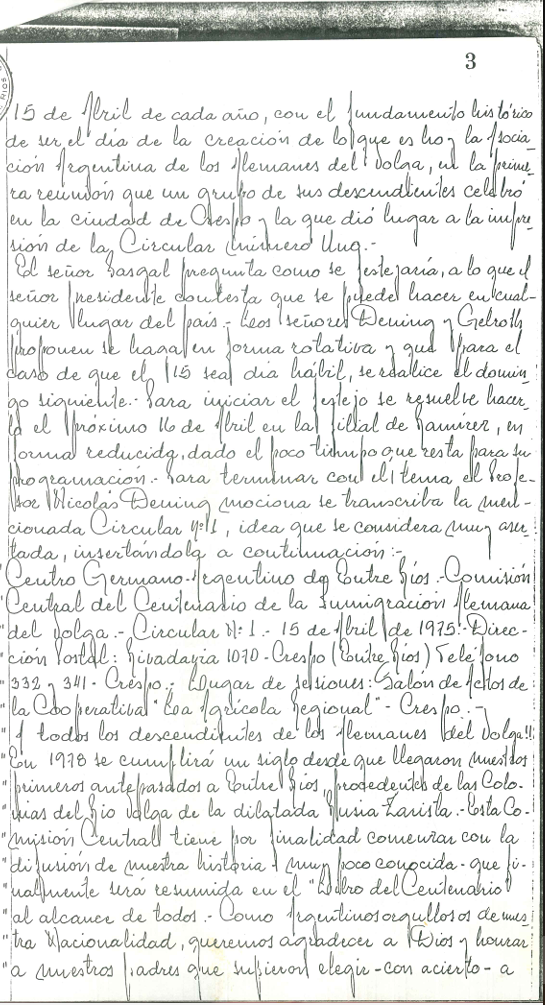 3
15 de Abril de cada año, con el fundamento histórico
de ser el día de la creación de lo que es hoy la Asocia-
ción Argentina de los Alemanes del Volga, en la prime-
ra reunión que un grupo de sus descendientes celebró
en la ciudad de Crespo y la que dió lugar a la impre-
sión de la Circular número Uno.-
El señor Gasgal pregunta como se festejaría, a lo que el
señor presidente contesta que se puede hacer en cual-
quier lugar del país.- Los señores Dening y Gelroth
proponen se haga en forma rotativa y que para el
caso de que el 15 sea día hábil, se realice el domin-
go siguiente.- Para iniciar el festejo se resuelve hacer-
lo el próximo 16 de Abril en la filial de Ramírez, en
forma reducida, dado el poco tiempo que resta para su
programación.- Para terminar con el tema el Profe-
sor Nicolás Dening mociona se transcriba la men-
cionada Circular Nº 1, idea que se considera muy acer-
tada, insertándola a continuación:-
Centro Germano-Argentino de Entre Ríos.-Comisión
"Central del Centenario de la Inmigración Alemana
"del Volga.- Circular Nº 1.- 15 de Abril de 1975.- Direc-
"ción Postal: Rivadavia 1070 - Crespo (Entre Ríos) Teléfono
"332 y 341 - Crespo.- Lugar de sesiones: Salón de Actos de
"la Cooperativa "Loa Agrícola Regional" - Crespo.-
"A todos los descendientes de los Alemanes del Volga!!
"En 1978 se cumplirá un siglo desde que llegaron nuestros
"primeros antepasados a Entre Ríos, procedentes de las Colo-
"nias del Río Volga de la dilatada Rusia Zarista.-Esta Co-
"misión Central tiene por finalidad comenzar con la
"difusión de nuestra historia - muy poco conocida - que fi-
"nalmente será resumida en el "Libro del Centenario"
"al alcance de todos.- Como Argentinos orgullosos de nues-
"tra Nacionalidad, queremos agradecer a Dios y honrar
"a nuestros padres que supieron elegir - con acierto - a